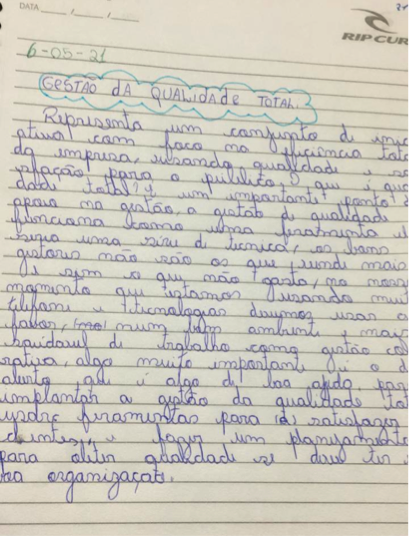 DATA
RIP CUR
6-05-21
GESTÃO DA QUALIDADE TOTAL.
Representa um conjunto de inic
ativa com foco na eficiência tota
da empresa, usando qualidade e sa
para o público, que é qua
dade total? é um importante ponto d
apoio na gestão, a gestão de qualidade
funciona como uma ferramenta e
uma série de tecnica, os bons
gestores não são os que vende mais
e sim o que não gasta, no nosso
momento que estamos usando muit
telefone e tecnologias devemos usar a
favor, num bom ambient, e mais
de trabalho como gestão col
rativa, algo muito importante é o d
que é algo de boa ajuda para
implantar a gestão da qualidade tot
ferramentas para satisfazer
clientes, e fazer um planejamento
para obter qualidade se deve ter
organização.